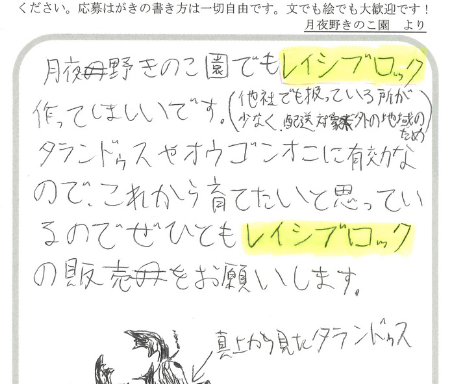 ください。応募はがきの書き方は一切自由です。文でも絵でも大歓迎です！
月夜野きのこ園　より
月夜野きのこ園でもレイシブロック
作ってほしいです。(他社でも扱っている所が
少なく、配送対象外の地域の
ため)
タランドゥスやオウゴンオニに有効な
ので、これから育てたいと思ってい
るのでぜひともレイシブロック
の販売をお願いします。
真上から見たタランドゥス